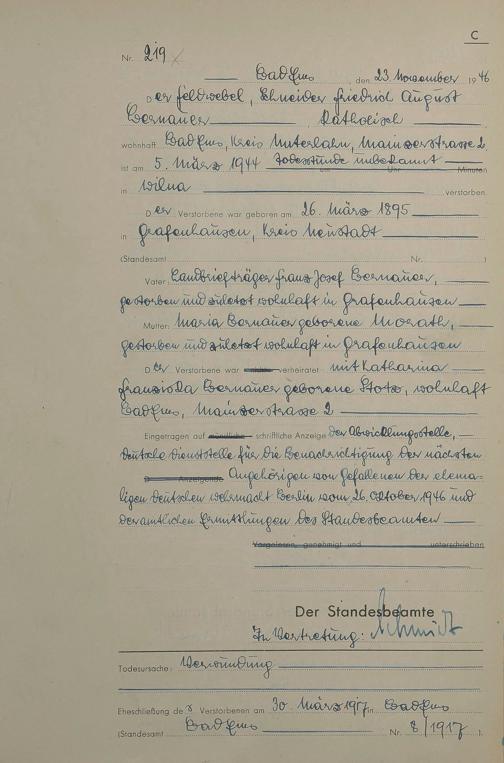 C
Nr. 219
Bad Ems, den 23. November 1946
Der Feldwebel, Schneider Friedrich August
Bernauer Katholisch
wohnhaft Bad Ems, Kreis Unterlahn, Mainzerstrasse 2
ist am 5. März 1944 Todesstunde unbekannt um Uhr Minuten
in Wilna verstorben.
Der Verstorbene war geboren am 26. März 1895
in Grafenhausen, Kreis Neustadt
(Standesamt Nr. )
Vater: Landbriefträger Franz Josef Bernauer,
gestorben und zuletzt wohnhaft in Grafenhausen
Mutter: Maria Bernauer geborene Morath,
gestorben und zuletzt wohnhaft in Grafenhausen
Der Verstorbene war verheiratet mit Katharina
Franziska Bernauer geborene Stotz, wohnhaft
Bad Ems, Mainzerstrasse 2
Eingetragen auf mündliche schriftliche Anzeige der Abwicklungsstelle,
Deutsche Dienststelle für die Benachrichtigung der nächsten
D Anzeigende Angehörigen von Gefallenen der ehema-
ligen deutschen Wehrmacht Berlin vom 26. Oktober 1946 und
der amtlichen Ermittlungen des Standesbeamten
Vorgelesen, genehmigt und unterschrieben
Der Standesbeamte
In Vertretung: Schmidt
Todesursache: Verwundung
Eheschließung des Verstorbenen am 30. März 1917 in Bad Ems
(Standesamt Bad Ems Nr. 8/1917 ).